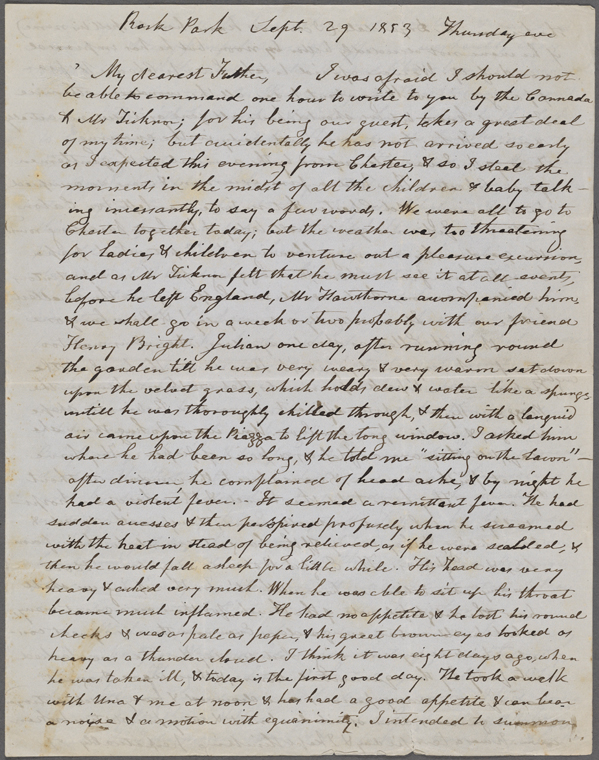 Rock Park Sept. 29 1853 Thursday eve
My dearest Father, I was afraid I should not
be able to command one hour to write to you by the Cannada
& Mr Ticknor; for his being our guest, takes a great deal
of my time; but accidentally he has not arrived so early
as I expected this evening from Chester, & so I steal the
moments in the midst of all the children & baby talk-
ing incessantly, to say a few words. We were all to go to
Chester together today; but the weather was too threatening
for Ladies, & children to venture out a pleasure excursion,
and as Mr Ticknor felt that he must see it at all events,
before he left England, Mr Hawthorne accompanied him,
& we shall go in a week or two probably with our friend
Henry Bright. Julian one day, after running round
the garden till he was very weary & very warm sat down
upon the velvet grass, which holds dew & water like a spunge,
untill he was thoroughly chilled through, & then with a languid
air came upon the Piazza to lift the long window. I asked him
where he had been so long, & he told me "sitting on the lawn"—
after dinner he complained of head ache, & by night he
had a violent fever. - It seemed a remittant fever. He had
sudden accesses & then perspired profusely when he screamed
with the heat in stead of being relieved, as if he were scalded, &
then he would fall asleep for a little while. His head was very
heavy & ached very much. When he was able to sit up his throat
became much inflamed. He had no appetite & he lost his round
cheeks & was as pale as paper, & his great brown eyes looked as
heavy as a thunder cloud. I think it was eight days ago, when
he was taken ill, & today is the first good day. He took a walk
with Una & me at noon & has had a good appetite & can bear
a noise & a motion with equanimity. I intended to summon